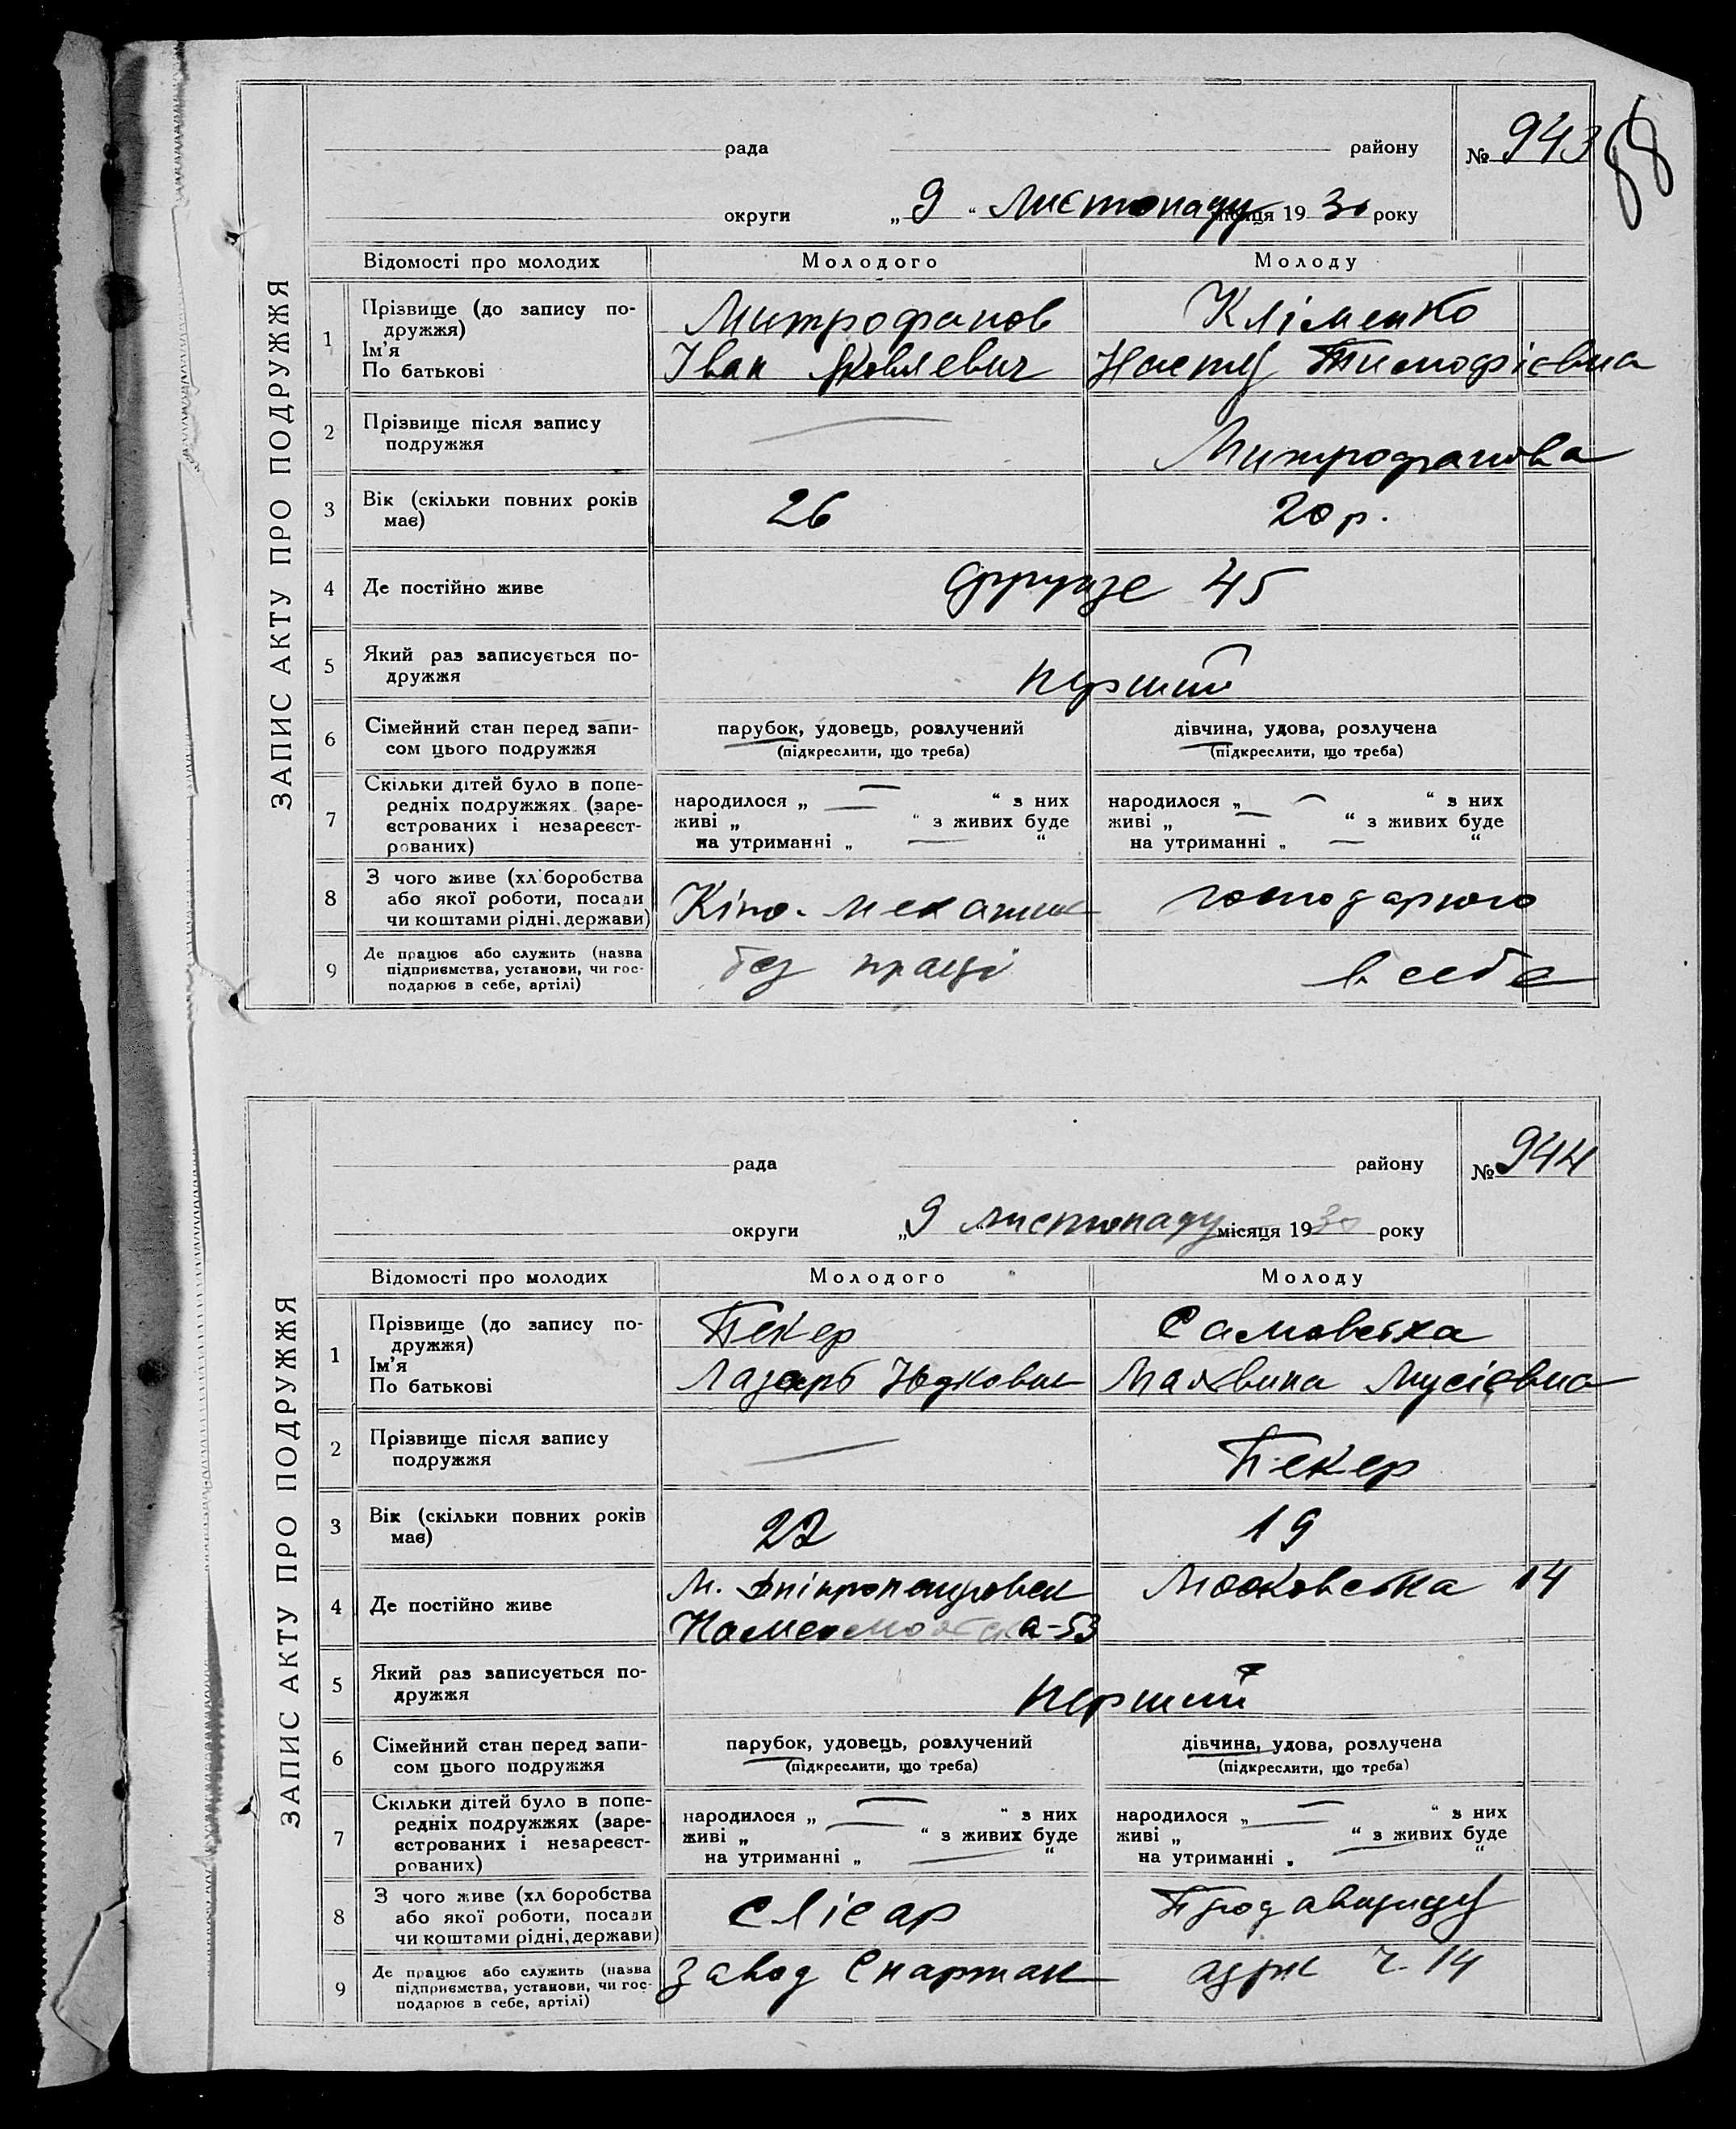 88
ЗАПИС АКТУ ПРО ПОДРУЖЖЯ
рада району № 943
округи „ 9 “ листопаду місяця 19 30 року
Відомості про молодих Молодого Молоду
1 Прізвище (до запису по-
дружжя)
Ім'я
По батькові
Митрофанов
Іван Яковлевич
Кліменко
Настя Тимофієвна
2 Прізвище після запису
подружжя
— Митрофанова
3 Вік (скільки повних років
має)
26 20 р.
4 Де постійно живе
Фрунзе 45
5 Який раз записується по-
дружжя
перший
6 Сімейний стан перед запи-
сом цього подружжя
парубок, удовець, розлучений
(підкреслити, що треба)
дівчина, удова, розлучена
(підкреслити, що треба)
7 Скільки дітей було в попе-
редніх подружжях (заре-
єстрованих і незареєст-
рованих)
народилося „ — “ з них
живі „ — “ з живих буде
на утриманні „ — “
народилося „ — “ з них
живі „ — “ з живих буде
на утриманні „ — “
8 З чого живе (хліборобства
або якої роботи, посади
чи коштами рідні, держави)
Кіно-механик
9 Де працює або служить (назва
підприємства, установи, чи гос-
подарює в себе, артілі)
без праці в себе
ЗАПИС АКТУ ПРО ПОДРУЖЖЯ
рада району № 944
округи „ 9 листопаду місяця 19 30 року
Відомості про молодих Молодого Молоду
1 Прізвище (до запису по-
дружжя)
Ім'я
По батькові
Бекер
Лазарь Юдкович
Самовська
Малвина Мусієвна
2 Прізвище після запису
подружжя
— Бекер
3 Вік (скільки повних років
має)
22 19
4 Де постійно живе
м. Дніпропетровск
а-53
Московська 14
5 Який раз записується по-
дружжя
перший
6 Сімейний стан перед запи-
сом цього подружжя
парубок, удовець, розлучений
(підкреслити, що треба)
дівчина, удова, розлучена
(підкреслити, що треба)
7 Скільки дітей було в попе-
редніх подружжях (заре-
єстрованих і незареєст-
рованих)
народилося „ — “ з них
живі „ — “ з живих буде
на утриманні „ — “
народилося „ — “ з них
живі „ — “ з живих буде
на утриманні „ “
8 З чого живе (хліборобства
або якої роботи, посади
чи коштами рідні, держави)
слісар
Продавщиця
9 Де працює або служить (назва
підприємства, установи, чи гос-
подарює в себе, артілі)
завод Спартак
ч. 14